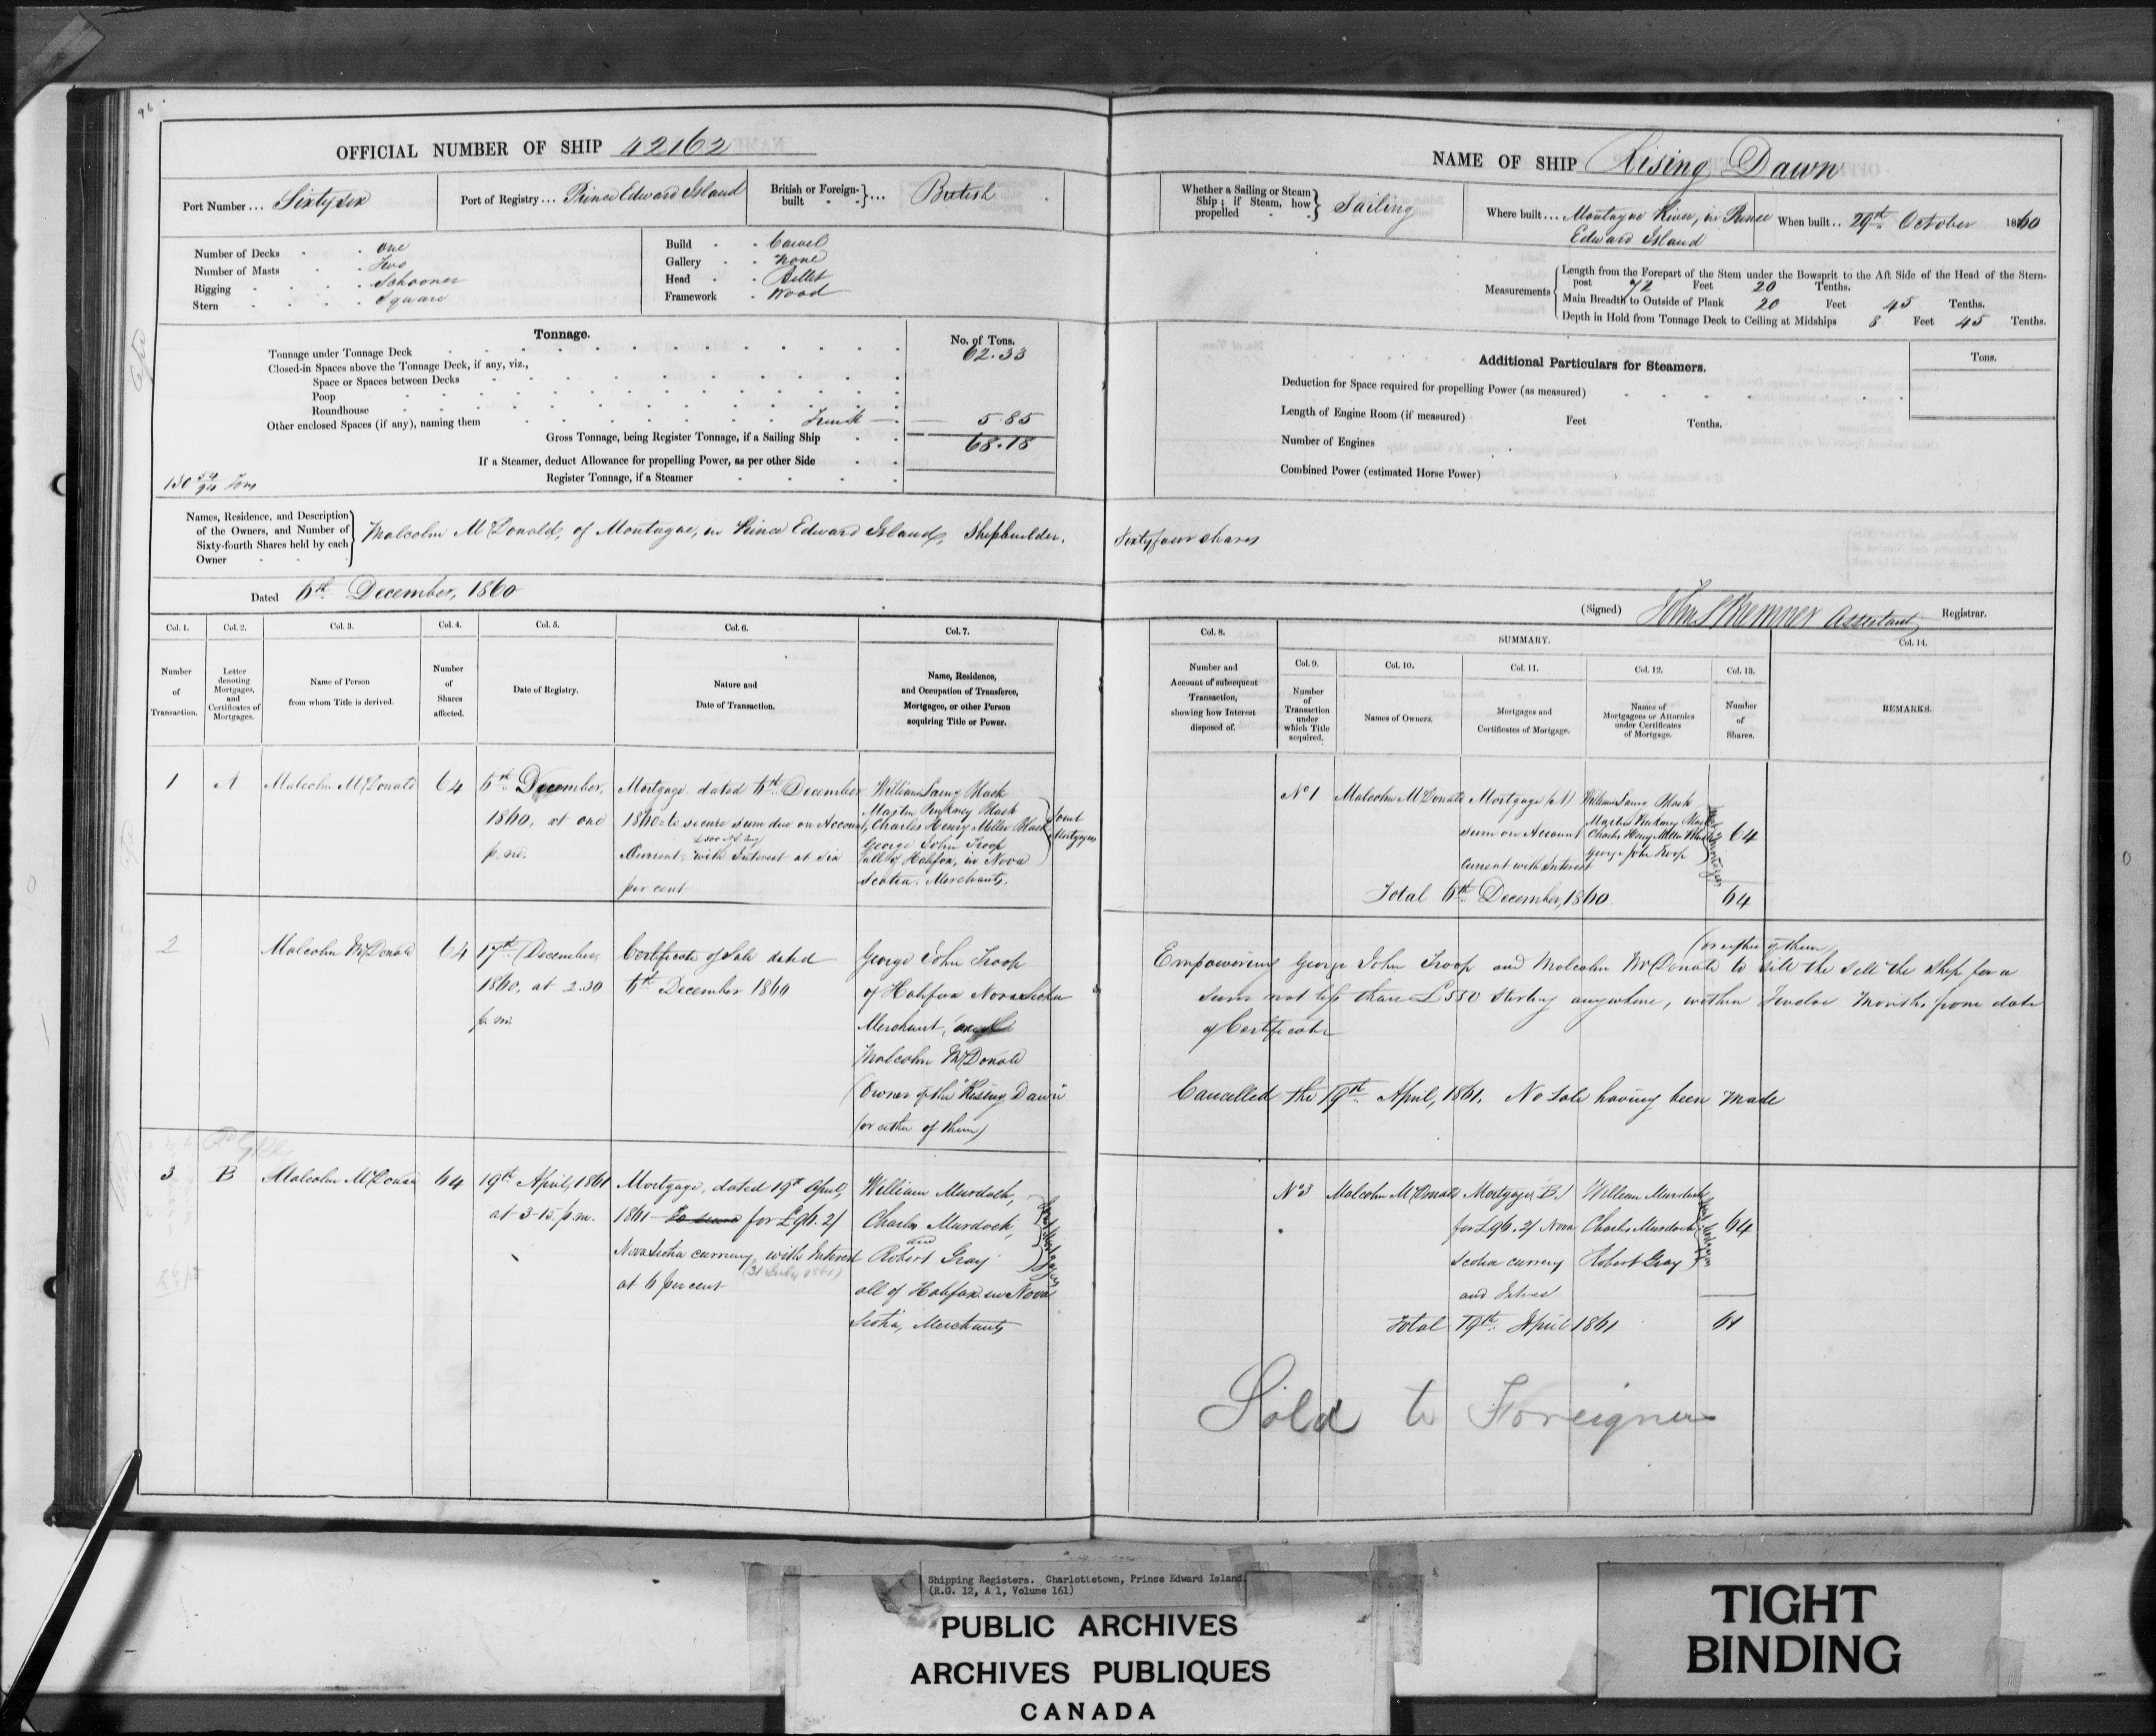 96
OFFICIAL NUMBER OF SHIP 42162
Port Number ... Sixty six
Port of Registry ... Prince Edward Island
British or Foreign-built ... British
Number of Decks One
Number of Masts Two
Rigging Schooner
Stern Square
Build Carvel
Gallery None
Head Billet
Framework Wood
Tonnage.
No. of Tons.
Tonnage under Tonnage Deck 62.33
Closed-in Spaces above the Tonnage Deck, if any, viz.,
Space or Spaces between Decks
Poop
Roundhouse
Other enclosed Spaces (if any), naming them Trunk 5.85
Gross Tonnage, being Register Tonnage, if a Sailing Ship 68.18
If a Steamer, deduct Allowance for propelling Power, as per other Side
Register Tonnage, if a Steamer
130 54/94 Tons
Names, Residence, and Description of the Owners, and Number of Sixty-fourth Shares held by each Owner
Malcolm McDonald, of Montague, in Prince Edward Island, Shipbuilder.
Dated 6th December, 1860
Col. 1. Col. 2. Col. 3. Col. 4. Col. 5. Col. 6. Col. 7.
Number of Transaction.
Letter denoting Mortgages, and Certificates of Mortgages.
Name of Person from whom Title is derived.
Number of Shares affected.
Date of Registry.
Nature and Date of Transaction.
Name, Residence, and Occupation of Transferee, Mortgagee, or other Person acquiring Title or Power.
1 A Malcolm McDonald 64
6th December, 1860, at one p.m.
Mortgage dated 6th December
1860 to secure sum due on Account
Current with Interest at six
per cent
William Laing Black
Martin Pinkney Black
Charles Henry Miller Black
George John Troop
all of Halifax, in Nova
Scotia. Merchants.
Joint Mortgagees
2 Malcolm McDonald 64
17th December,
1860, at 2.30
p.m.
Certificate of Sale dated
6th December 1860
George John Troop
of Halifax Nova Scotia
Merchant,
Malcolm McDonald
(Owner of the "Rising Dawn"
(or either of them)
3 B Malcolm McDonald 64
19th April, 1861
at 3-15. p.m.
Mortgage, dated 19th April,
1861 for £96.2/
Nova Scotia currency, with Interest
at 6 per cent
(31 July 1861)
William Murdoch,
Charles Murdoch,
and
Robert Gray
all of Halifax in Nova
Scotia, Merchants
Joint Mortgagees
NAME OF SHIP Rising Dawn
Whether a Sailing or Steam Ship; if Steam, how propelled Sailing
Where built ... Montague River, in Prince Edward Island
When built .. 29th October 1860
Measurements
Length from the Forepart of the Stem under the Bowsprit to the Aft Side of the Head of the Stern-post 72 Feet 20 Tenths.
Main Breadth to Outside of Plank 20 Feet 45 Tenths.
Depth in Hold from Tonnage Deck to Ceiling at Midships 8 Feet 45 Tenths.
Additional Particulars for Steamers.
Tons.
Deduction for Space required for propelling Power (as measured)
Length of Engine Room (if measured) Feet Tenths.
Number of Engines
Combined Power (estimated Horse Power)
Sixty four shares
(Signed) John S Bremner Assistant Registrar.
Col. 8. SUMMARY. Col. 14.
Col. 9. Col. 10. Col. 11. Col. 12. Col. 13.
Number and Account of subsequent Transaction, showing how Interest disposed of.
Number of Transaction under which Title acquired.
Names of Owners.
Mortgages and Certificates of Mortgage.
Names of Mortgagees or Attornies under Certificates of Mortgage.
Number of Shares.
REMARKS.
No 1 Malcolm McDonald
Mortgage (A)
sum on Account
Current with Interest
William Laing Black
Martin Pinkney Black
Charles Henry Miller Black
George John Troop
Joint Mortgagees
64
Total 6th December, 1860 64
(or either of them)
Empowering George John Troop and Malcolm McDonald to sell the sell the ship for a
sum not less than £550 Sterling anywhere, within Twelve Months from date
of Certificate
Cancelled the 19th April, 1861. No Sale having been Made
No 3 Malcolm McDonald
Mortgage B.)
for £96.2/ Nova
Scotia currency
and
William Murdoch
Charles Murdoch
Robert Gray
64
Total 19th April 1861 64
Sold to Foreigners
Shipping Registers. Charlottetown, Prince Edward Island.
(R.G. 12, A 1, Volume 161)
PUBLIC ARCHIVES
ARCHIVES PUBLIQUES
CANADA
TIGHT
BINDING